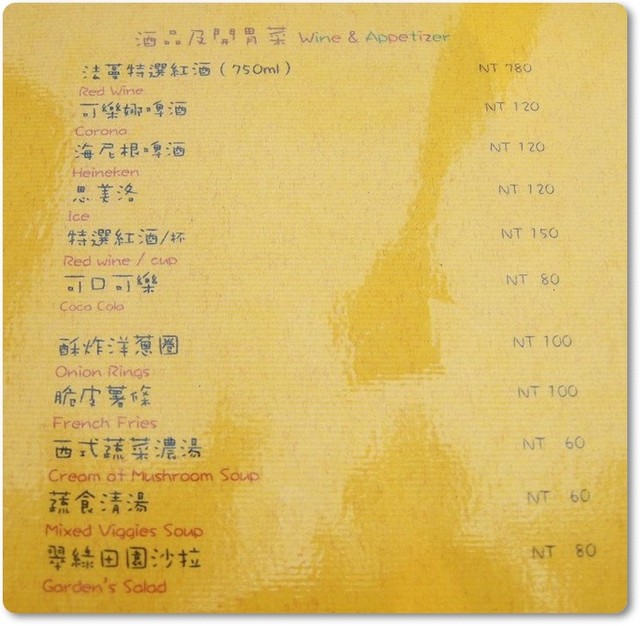 酒品及開胃菜 Wine & Appetizer
法蔓特選紅酒(750ml) NT 780
Red Wine
可樂娜啤酒 NT 120
Corona
海尼根啤酒 NT 120
Heineken
思美洛 NT 120
Ice
特選紅酒/杯 NT 150
Red wine / cup
可口可樂 NT 80
Coca Cola
酥炸洋蔥圈 NT 100
Onion Rings
脆皮薯條 NT 100
French Fries
西式蔬菜濃湯 NT 60
Cream of Mushroom Soup
蔬食清湯 NT 60
Mixed Viggies Soup
翠綠田園沙拉 NT 80
Garden's Salad